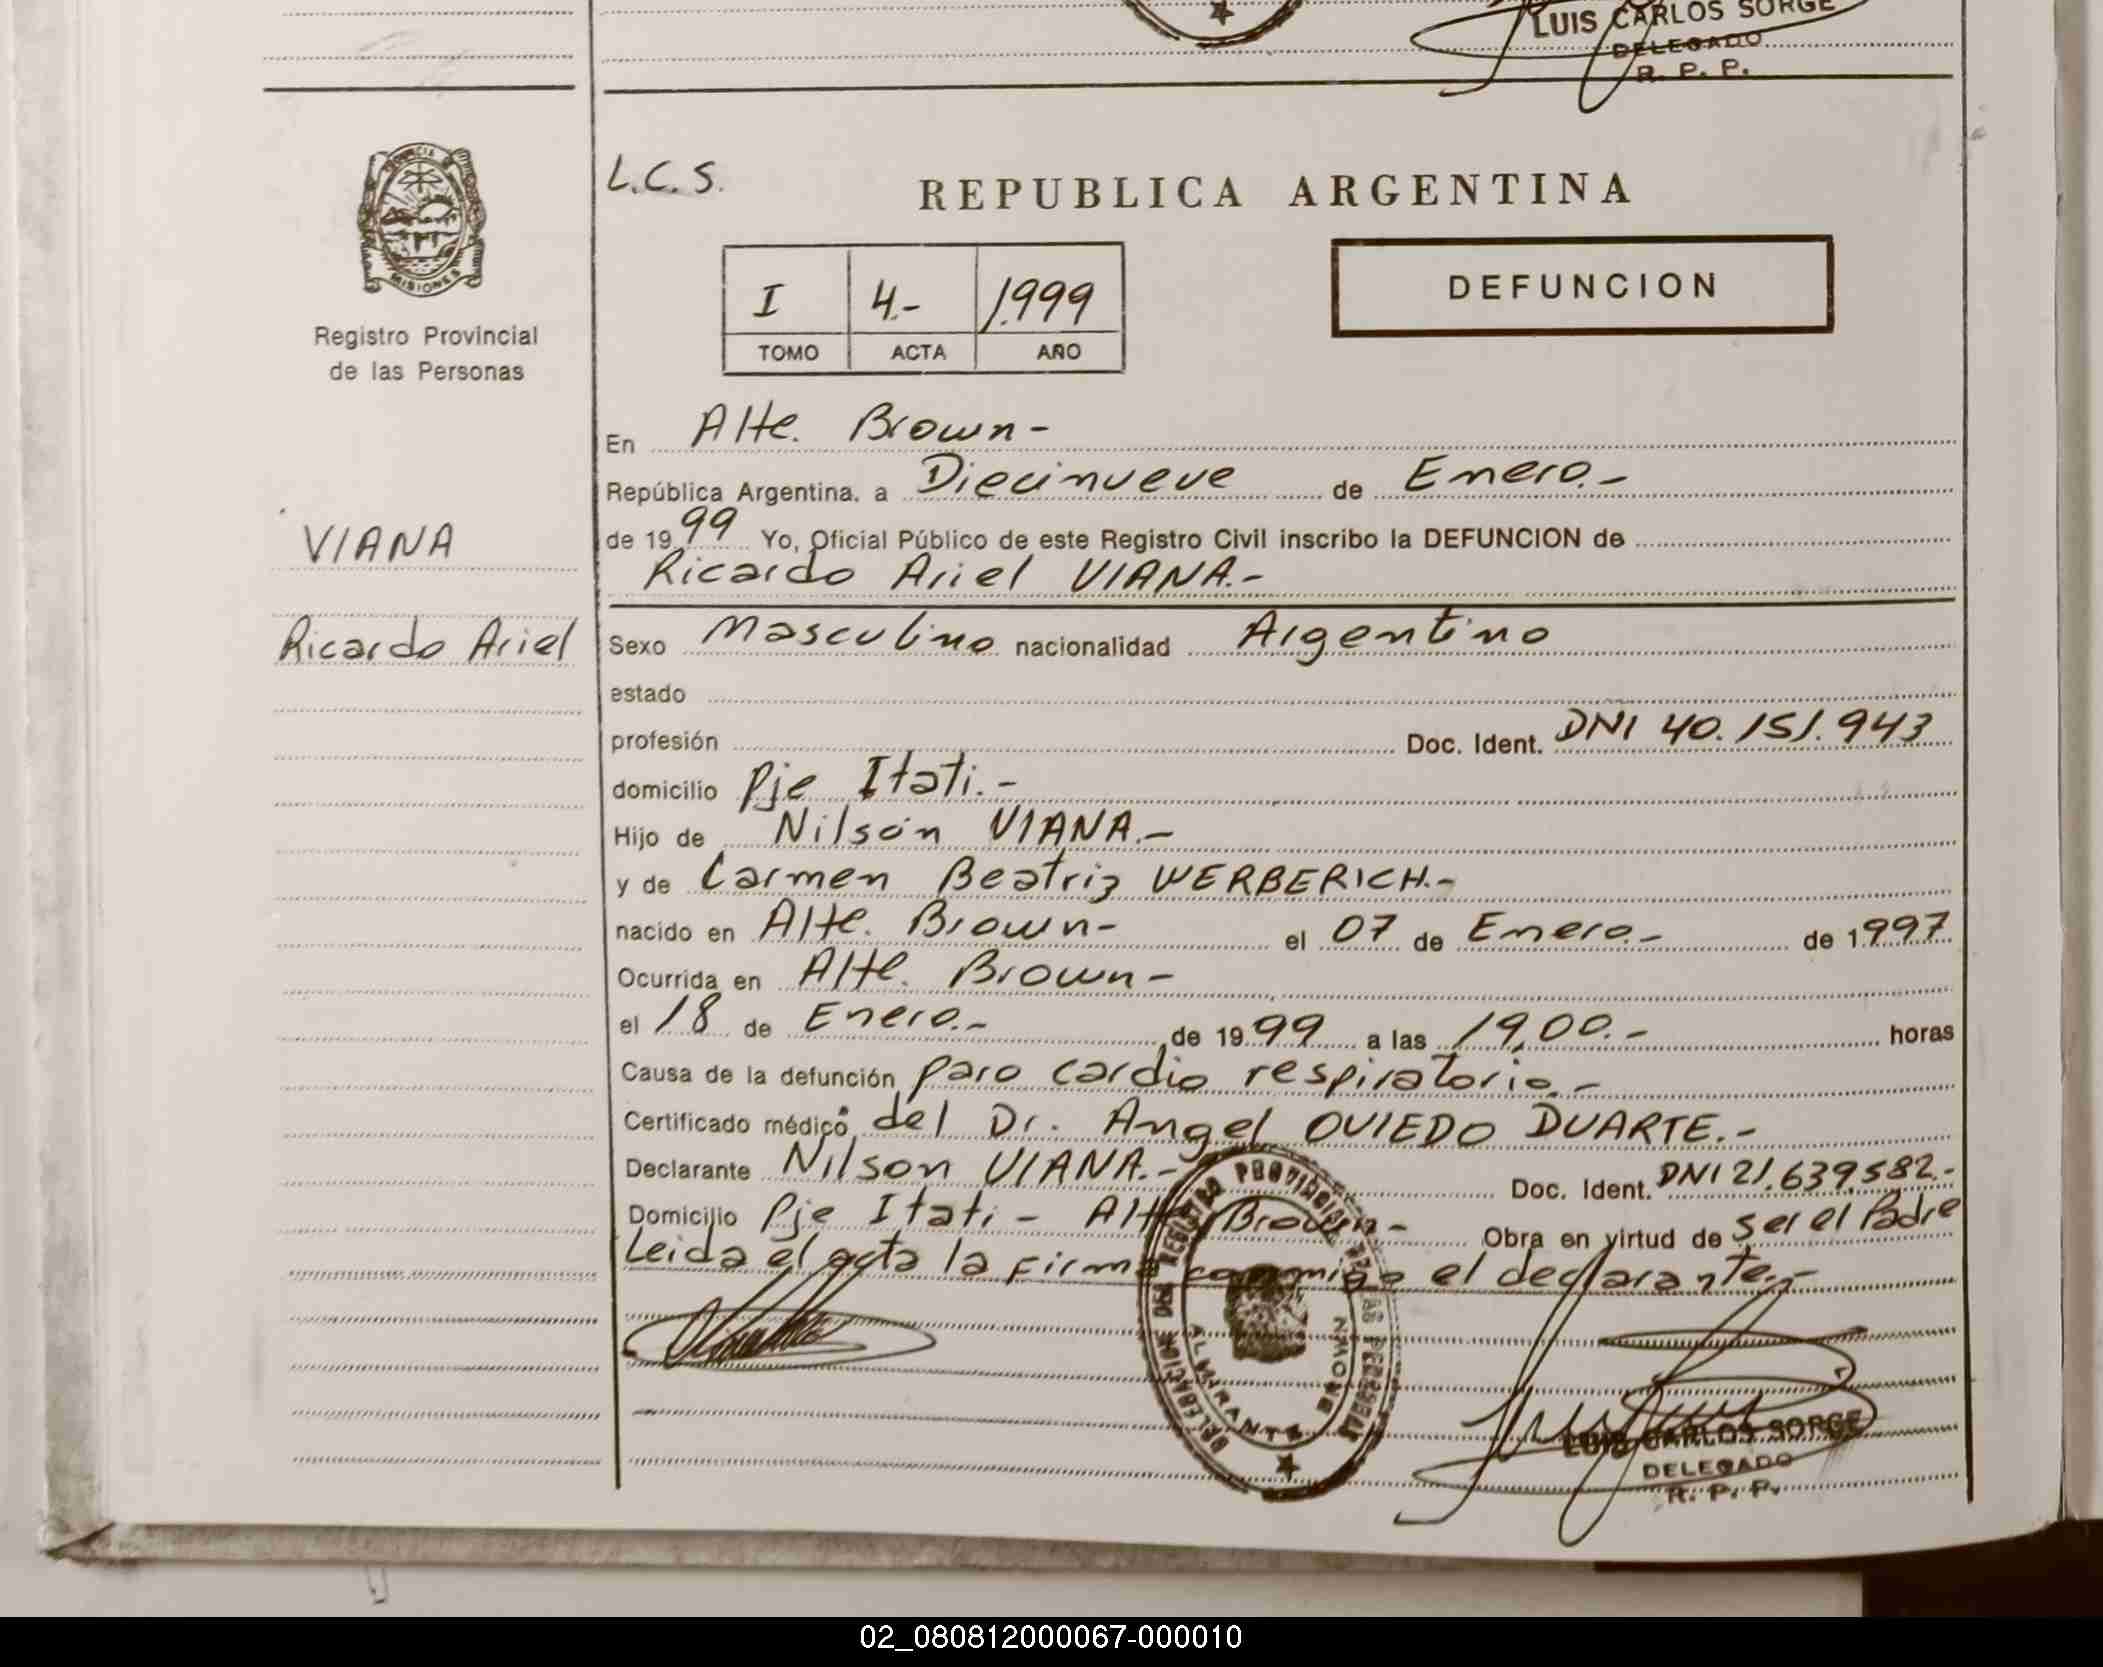 LUIS CARLOS SORGE
DELEGADO
R. P. P.
PROVINCIA
MISIONES
Registro Provincial
de las Personas
VIANA
Ricardo Ariel
L.C.S.
REPUBLICA ARGENTINA
I 4.- 1.999
TOMO ACTA AÑO
DEFUNCION
En Alte. Brown-
República Argentina, a Diecinueve de Enero.-
de 1999 Yo, Oficial Público de este Registro Civil inscribo la DEFUNCION de
Ricardo Ariel VIANA.-
Sexo Masculino nacionalidad Argentino
estado
profesión Doc. Ident. DNI 40.151.943
domicilio Pje Itati.-
Hijo de Nilson VIANA.-
y de Carmen Beatriz WERBERICH.-
nacido en Alte. Brown- el 07 de Enero.- de 1997
Ocurrida en Alte. Brown-
el 18 de Enero.- de 1999 a las 19,00.- horas
Causa de la defunción paro cardio respiratorio.-
Certificado médico del Dr. Angel OVIEDO DUARTE.-
Declarante Nilson VIANA.- Doc. Ident. DNI 21.639.582.-
Domicilio Pje Itati - Alte. Brown- Obra en virtud de ser el Padre
Leida el acta la firma conmigo el declarante.-
DELEGACION DEL REGISTRO PROVINCIAL DE LAS PERSONAS
ALMIRANTE BROWN
LUIS CARLOS SORGE
DELEGADO
R. P. P.
02_080812000067-000010